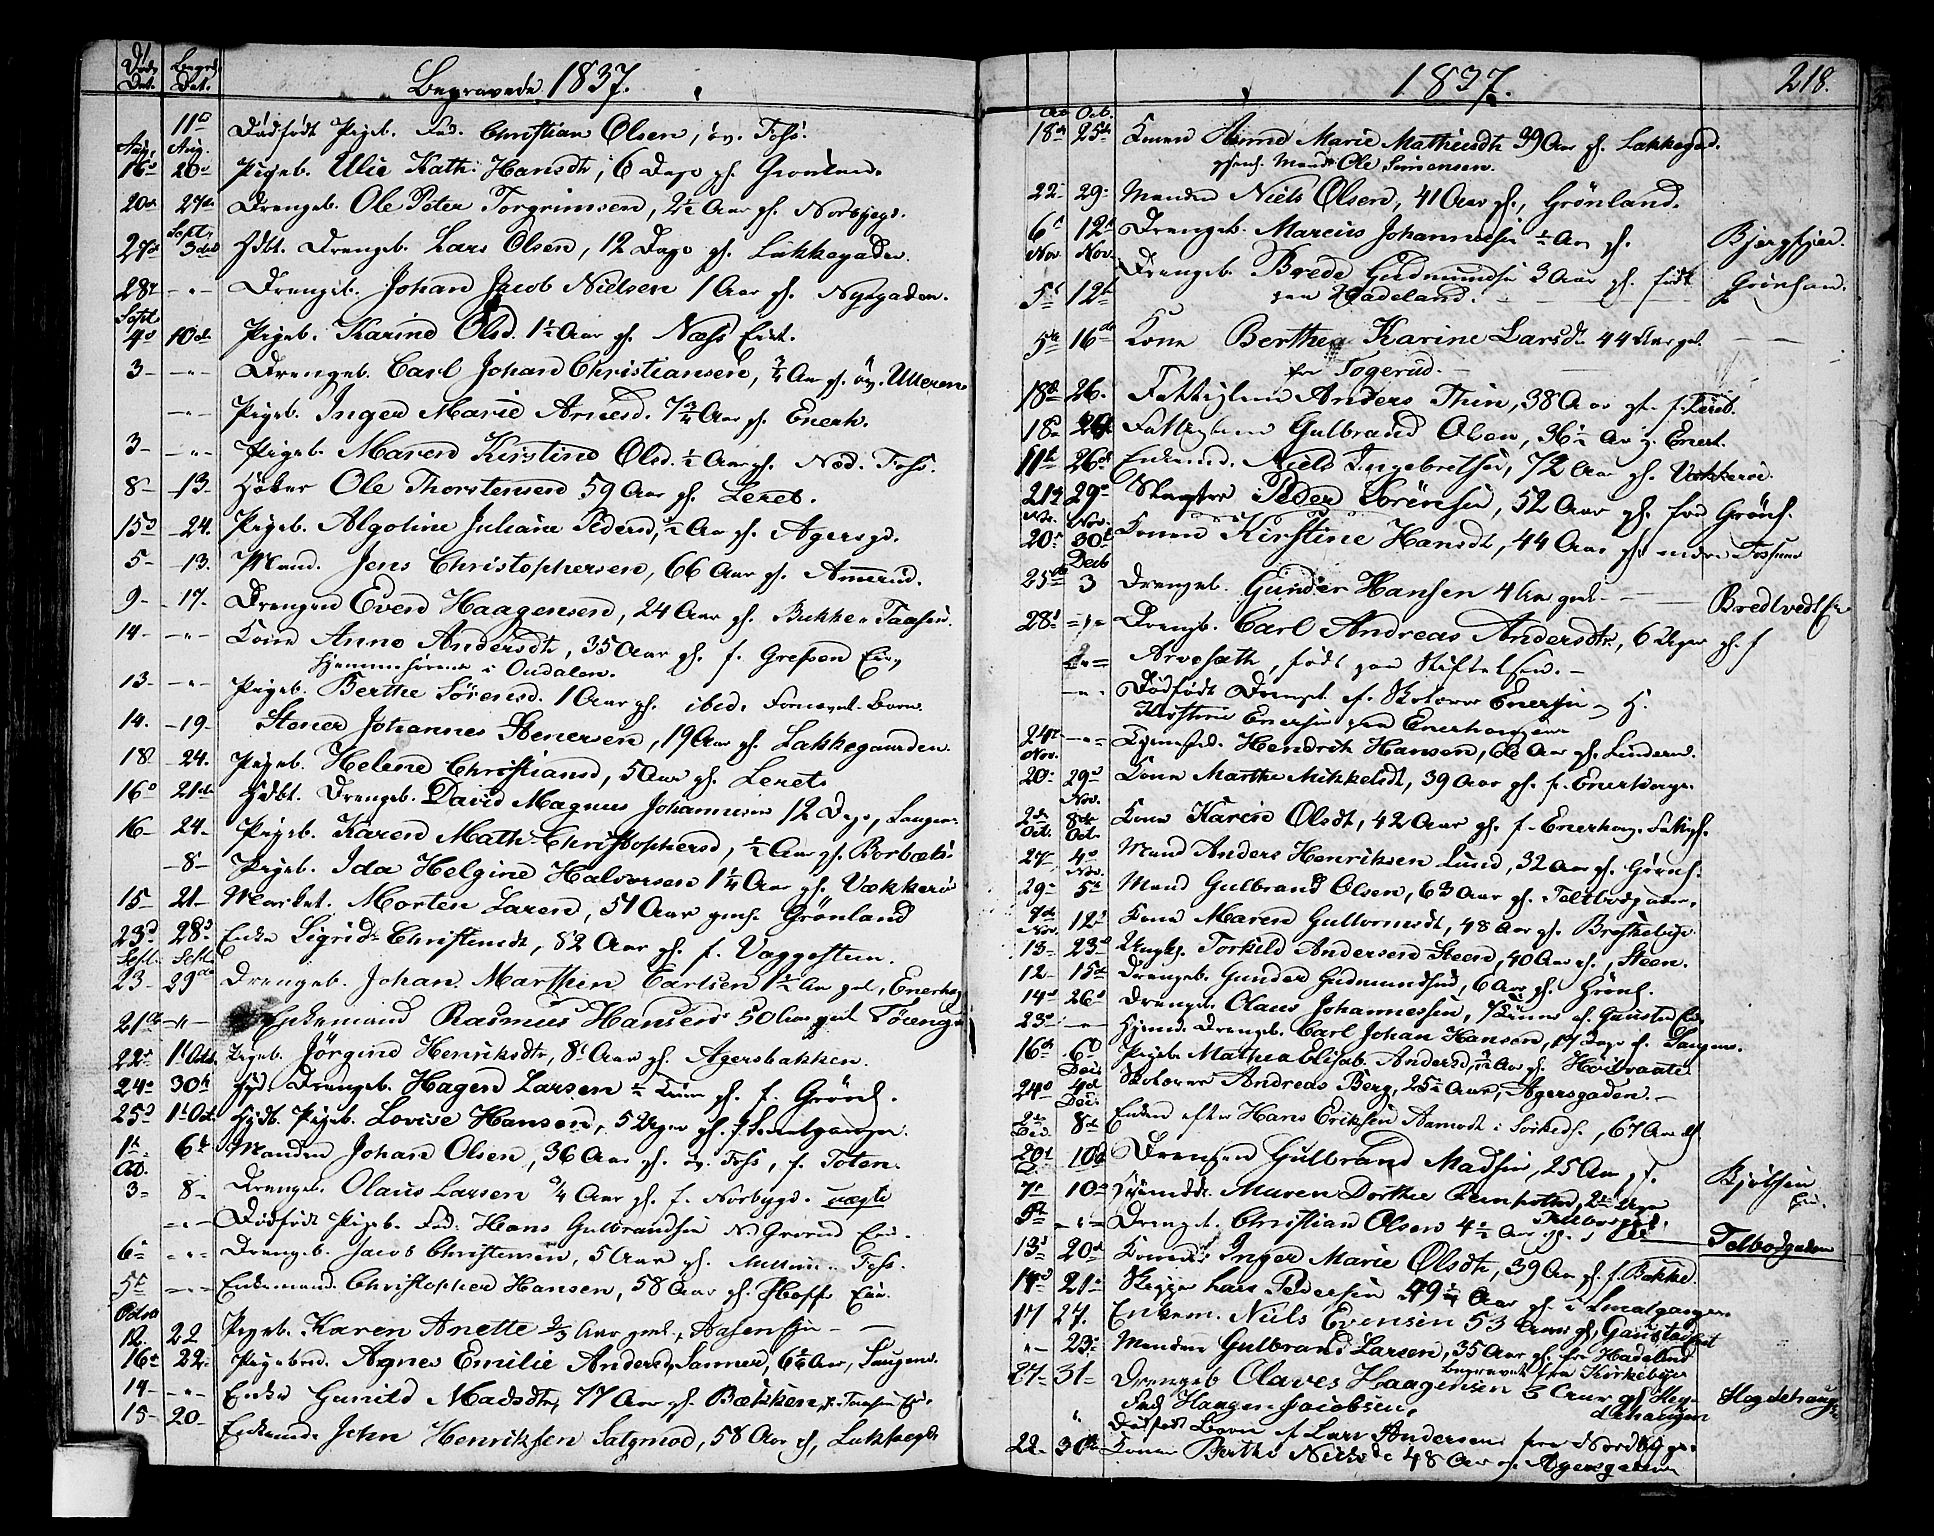 Døds Dat. Begrav. Dat. Begravede 1837.
11te Dødfødt Pigeb. Fad. Christian Olsen, öv. Foss.
Aug. Aug.
16 20 Pigeb. Ulie Kath. Hansdt, 6 Dage gl. Grönland.
20de 27de Drengeb. Ole Peter Torgrimsen, 2½ Aar gl. Norbygd.
Sept.
27de 3die Hdbt. Drengeb. Lars Olsen, 12 Dage gl. Lakkegaden.
28 - " - Drengeb. Johan Jacob Nielsen 1 Aar gl. Nygaden.
Sept.
4 10de Pigeb. Karine Olsd. 1½ Aar gl. Næss Eiet.
3 - " - Drengeb. Carl Johan Christiansen, ¾ Aar gl. öv. Ulleren
- " - Pigeb. Inger Marie Arnesd. 7¾ Aar gl. Enerh.
3 - " - Pigeb. Maren Kirstine Olsd. ½ Aar gl. Ned. Foss.
8 13 Höker Ole Thorstensen 59 Aar gl. Leret.
15 24. Pigeb. Algoline Juliane Pedersd, ½ Aar gl. Agersgd.
5 13. Mand. Jens Christophersen, 66 Aar gl. Ammerud.
9 17 Drengen Even Haagensen, 24 Aar gl. Bakke Taasen.
14 - " - Kone Anne Andersdt, 35 Aar gl. f. Grefsen Eie,
hjemmehörende i Oudalen.
13 - " - Pigeb. Berthe Sörensd. 1 Aar gl. ibid. Fornævnt. Barn.
14. 19. Stener Johannes Stenersen, 19 Aar gl. Lakkegaarden.
18 24. Pigeb. Helene Christiansd, 5 Aar gl. Leret.
16 21de Hdbt. Drengeb. David Magnus Johannesen 12 Dage, Saugen
16 24. Pigeb. Karen Math. Christophersd, ½ Aar gl. Borbæk
8 Pigeb. Ida Helgine Halvorsen 1¼ Aar gl. Vækkerö
15 21 Morten Larsen, 51 Aar gml. Grönland
23d 28d Enke Sigrid Christensdt, 82 Aar gl. f. Vaggestein.
Sept. Sept.
23 29de Drengeb. Johan Marthin Carlsen ½ Aar gml, Enerhg
21de - " - Enkemand Rasmus Hansen 50 Aar gml Töiengd
22 1t Octb. Pigeb. Jörgine Henriksdt, 8 Aar gl. Agersbakken.
24 30te Hjd Drengeb. Hagen Larsen ½ Time gl. f. Grönl.
25 1t Oct. Hjdt. Pigeb. Lovise Hansen, 5 Uger gl. f. Smalgangen.
1t 6te Manden Johan Olsen, 36 Aar gl. öv. Foss, f. Toten.
Oct.
3 8 Drengeb. Olaus Larsen ¾ Aar gl. f. Norbygd. uægte
- " - Dødfødt Pigeb. Fad: Hans Gulbrandsen N. Grorud Eie.
6 - " - Drengeb. Jacob Christensen, 5 Aar gl. Mellem Foss.
5te - " - Enkemand Christopher Hansen, 58 Aar gl. Hoff Eie.
Octbr
12. 22 Pigeb. Karen Anette ⅔ Aar gml, Aasen
16 22. Pigebed. Agnes Emilie Andersd, Sanner, 6½ Aar, Saugene.
14 - " - Enke Gunild Madsdt, 77 Aar gl. Bækken, Taasen Eie.
15 20 Enkemand John Henriksen Salgmod, 58 Aar gl, Lakkegd
1837. 218.
Oct Oct.
18de 25de Konen Anne Marie Mathiesdt 39 Aar gl. Lakkegad.
Mand Ole Simensen.
22 29 Manden Niels Olsen, 41 Aar gl, Grönland.
6 12 Drengeb. Marcus Johannesen ½ Aar gl. Bjergfjer.
Nov. Nov.
5 12 Drengeb. Brede Gudmundsen 3 Aar gl. født Grönsan.
paa Hadeland.
5te 16de Kone Berthe Karine Larsdt 44 Aar gl.
fra Togerud.
18 26. Fattiglem Anders Thin, 38 Aar gl. f. Leret.
18 26 Fattiglem Gulbrand Olsen, 36½ Aar g. Enerh.
11te 26 Enkemd. Niels Ingebretsen, 72 Aar gl. Vækkerö.
21 29 Slagter Peder Sörensen, 52 Aar gl. fra Grönl.
Nov. Nov.
20 30te Konen Kirstine Hansdt, 44 Aar gl. nedre Fossum
Decb
25de 3 Drengeb. Gunder Hansen 4 Aar gml. Bredtvedt Eie
28 - " - Drengb. Carl Andreas Andersdt, 6 Uger gl. f
- " - Arvesæth, født paa Stiftelsen.
- " - Dødfødt Drengeb. f. Skolærer Enersen H.
Kirstine Enersen paa Enerhougen
24 - " - Hendrik Hansen, 66 Aar gl. Linderud.
Nov.
20 29 Kone Marthe Mikkelsdt, 39 Aar gl. f. Enerhoug.
Nov.
2de 8de Kone Karen Olsdt, 42 Aar gl. f. Enerhoug. Fattigh.
Oct. Oct.
27 4 Mand Anders Henriksen Lund, 32 Aar gl. Grönl.
Nov.
29 5te Mand Gulbrand Olsen, 63 Aar gl. Teltbodgaden.
7de 12 Kone Maren Gulbrandsdt, 48 Aar gl. Breskeby.
Nov.
13 23 Ungk. Torkild Andersen Steen, 40 Aar gl., Steen.
12 15de Drengeb. Gunder Gudmundsen, 6 Aar gl. Grönl.
14 26 Drengeb. Olaus Johannessen, gl. Gaustad Eie
23 - " - Hjemd. Drengeb. Carl Johan Hansen, 17 Dage gl. Saugene.
16de 6 Pigeb. Mathea Elisab. Andersd, gl. Hvidvaate
Dec.
24 4de Skolærer Andreas Berg, 25½ Aar, Agersgaden.
Dec.
2 8de Enken efter Hans Eriksen Aamodt i Sörkeds., 67 Aar gl
Dec.
20 10d Drengen Gulbrand Madsen, 25 Aar gl. Bjölsen
7 10 Hjemdt. Maren Dorthe Reinholtsd, 2 Uger Eie.
Teltbodgd.
5te - " - Drengeb. Christian Olsen 4½ Aar gl. Teltbodgaden
13 20d Konen Inger Marie Olsdt, 39 Aar gl. f. Bakke.
14d 21 Skipper Lars Pedersen 49½ Aar gl. i Smalgangen
17 27. Enkem. Niels Evensen 53 Aar gl, Gaustad Eiet
- " - 23 Manden Gulbrand Larsen, 35 Aar gl. fra Hadeland
Begravet fra Kirkebye
27 31 Drengeb Olaves Haagensen Aar gl Heg- Hegdehaug
Fad Haagen Jacobsen, dehaugen
" Dødfødt Barn f. Lars Andersen fra Nordbyge.
22 30te Konen Berthe Nielsdt 48 Aar gl. Agersgaden